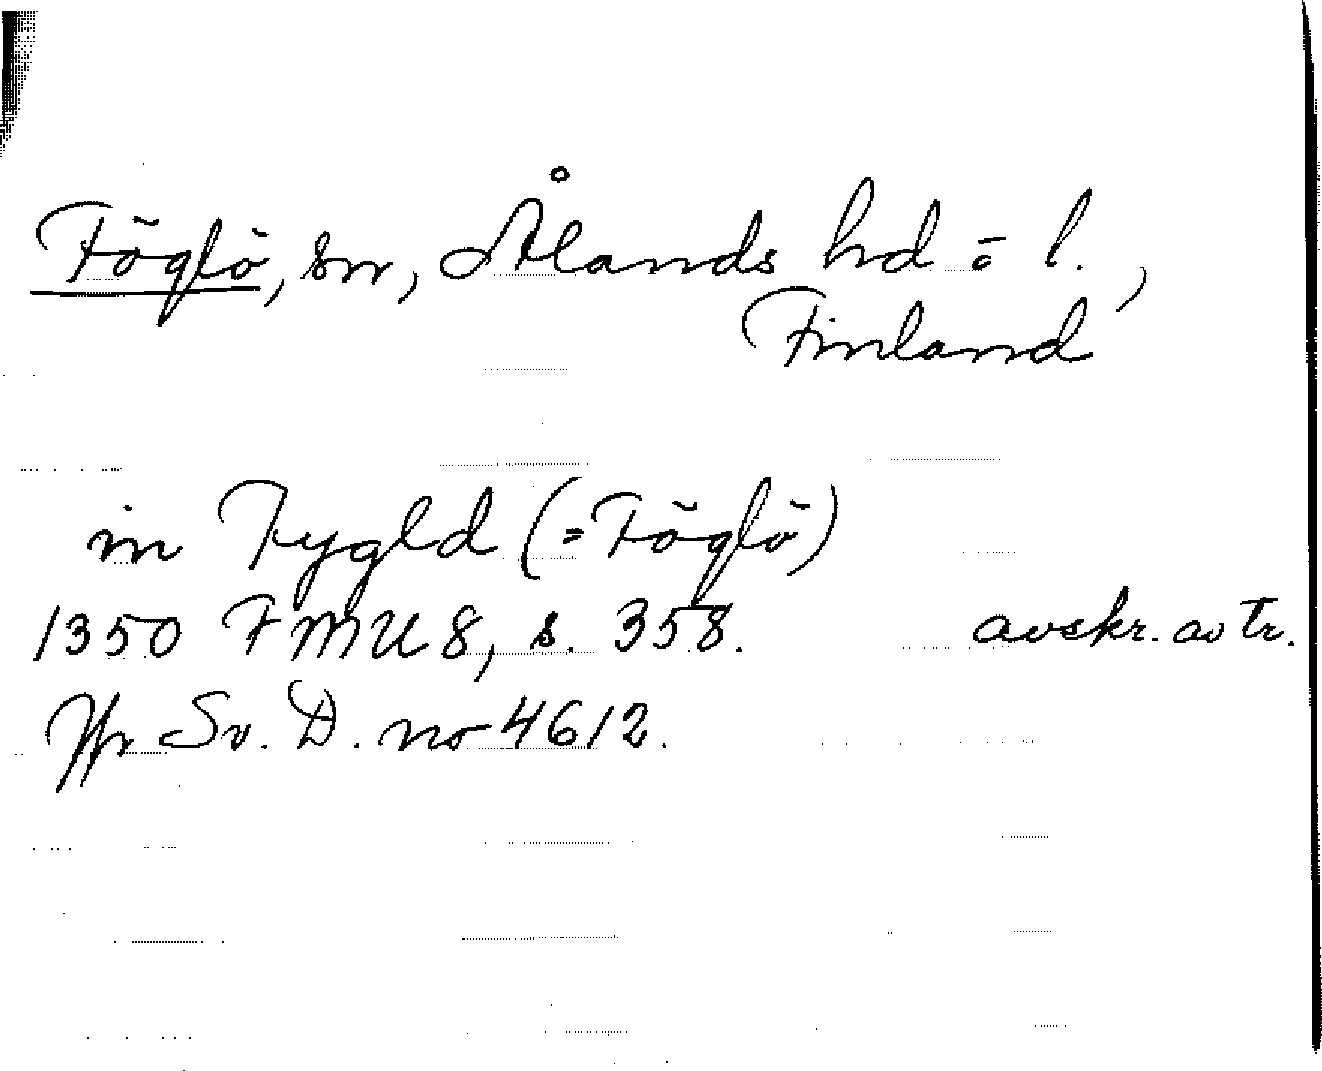 Föglö, sn, Ålands hd o l.,
Finland
in Fygld (=Föglö)
1350 FMU 8, s. 358. avskr. av tr.
Jfr Sv. D. no 4612.